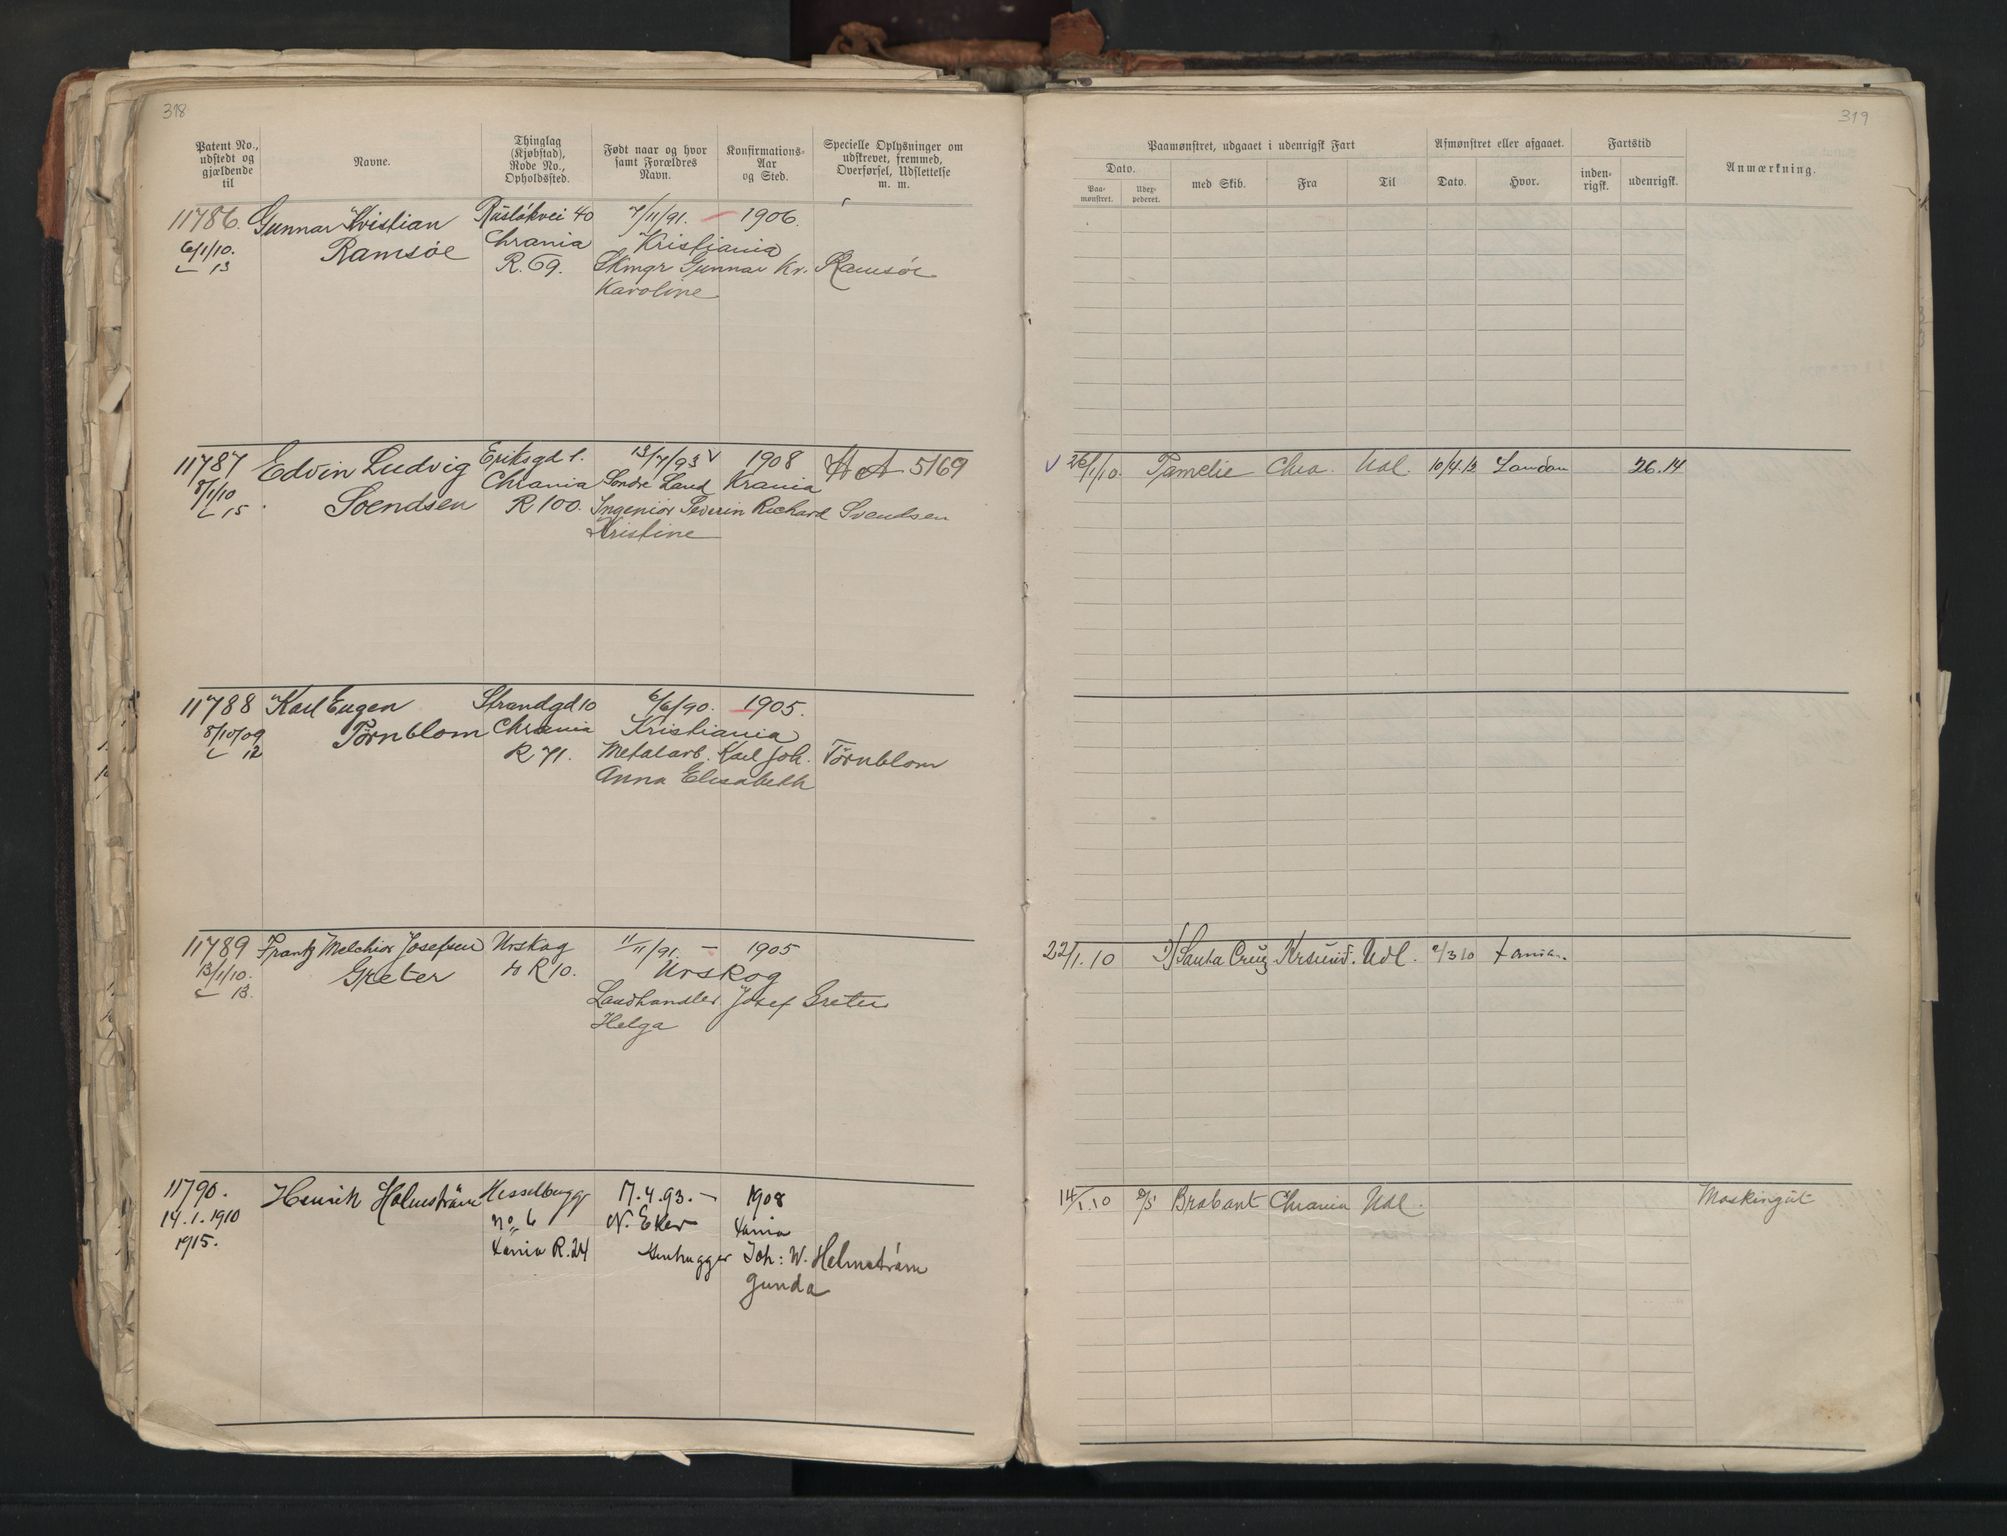 318
Patent No., udstedt og gjældende til
Navne.
Thinglag (Kjøbstad), Rode No., Opholdssted.
Født naar og hvor samt Forældres Navn.
Konfirmations-Aar og Sted.
Specielle Oplysninger om udskrevet, fremmed, Overførsel, Udslettelse m. m.
11786. Gunnar Kristian Ruseløkvei 40 7/11/91. – 1906
6/1/10. Ramsøe Chrania Kristiania
13 R. 69. Skmgr Gunnar Kr. Ramsøe
Karoline
11787 Edvin Ludvig Eriksgd 1. 13/7/93 v 1908 A 5169
8/1/10 Chrania Søndre Land Krania
15 Svendsen R 100. Ingeniør Severin Richard Svendsen
Kristine
11788 Karl Eugen Strandgd 10 6/6/90. – 1905.
8/10/09 Törnblom Chrania Kristiania
12 R 71. Metalarb. Karl Joh. Törnblom
Anna Elisabeth
11789 Frantz Melchior Josefsen Urskog 11/11/91. – 1905
13/1/10. Greter R 10. Urskog
13. Landhandler Josef Greter
Helga
11790. Henrik Holmström Hesselbergg 17.4.93. – 1908
14.1.1910 No 6 N. Eker Xania
1915. Xania R. 24 Joh: W. Holmström
Gunda
319
Paamønstret, udgaaet i udenrigsk Fart
Afmønstret eller afgaaet.
Fartstid
Anmærkning.
Dato.
Paa-mønstret.
Uder-pederet.
med Skib.
Fra
Til
Dato.
Hvor.
inden-rigsk.
udenrigsk.
v 26/1/10. Pamelie Chra. Udl. 10/4.12 London 26.14
22/1.10 Santa Cruz Krsund. Udl. 2/3 10 Xania.
14/1.10 2/5 Brabant Chrania Udl. Maskingut